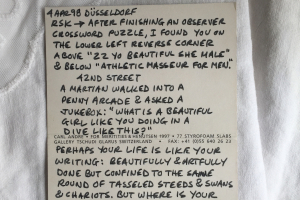 4 APR 98 DÜSSELDORF
RSK → AFTER FINISHING AN OBSERVER
CROSSWORD PUZZLE, I FOUND YOU ON
THE LOWER LEFT REVERSE CORNER
ABOVE "22 YO BEAUTIFUL SHE MALE"
& BELOW "ATHLETIC MASSEUR FOR MEN."
42ND STREET
A MARTIAN WALKED INTO A
PENNY ARCADE & ASKED A
JUKEBOX: "WHAT IS A BEAUTIFUL
GIRL LIKE YOU DOING IN A
DIVE LIKE THIS?"
CARL ANDRE • FOR MERITHIES & HENUTSEN 1997 • 77 STYROFOAM SLABS
GALLERY TSCHUDI GLARUS SWITZERLAND • FAX: +41 (0)55 640 26 23
PERHAPS YOUR LIFE IS LIKE YOUR
WRITING: BEAUTIFULLY & ARTFULLY
DONE BUT CONFINED TO THE SAME
ROUND OF TASSELED STEEDS & SWANS
& CHARIOTS. BUT WHERE IS YOUR